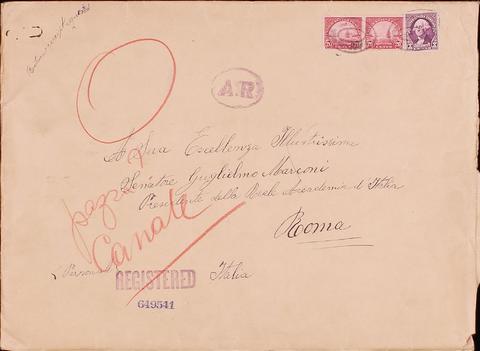 A.R.
A Sua Eccellenza Illustrissima
Senatore Guglielmo Marconi
Presidente della Reale Accademia d'Italia
Roma
Canale
REGISTERED
Italia
649541